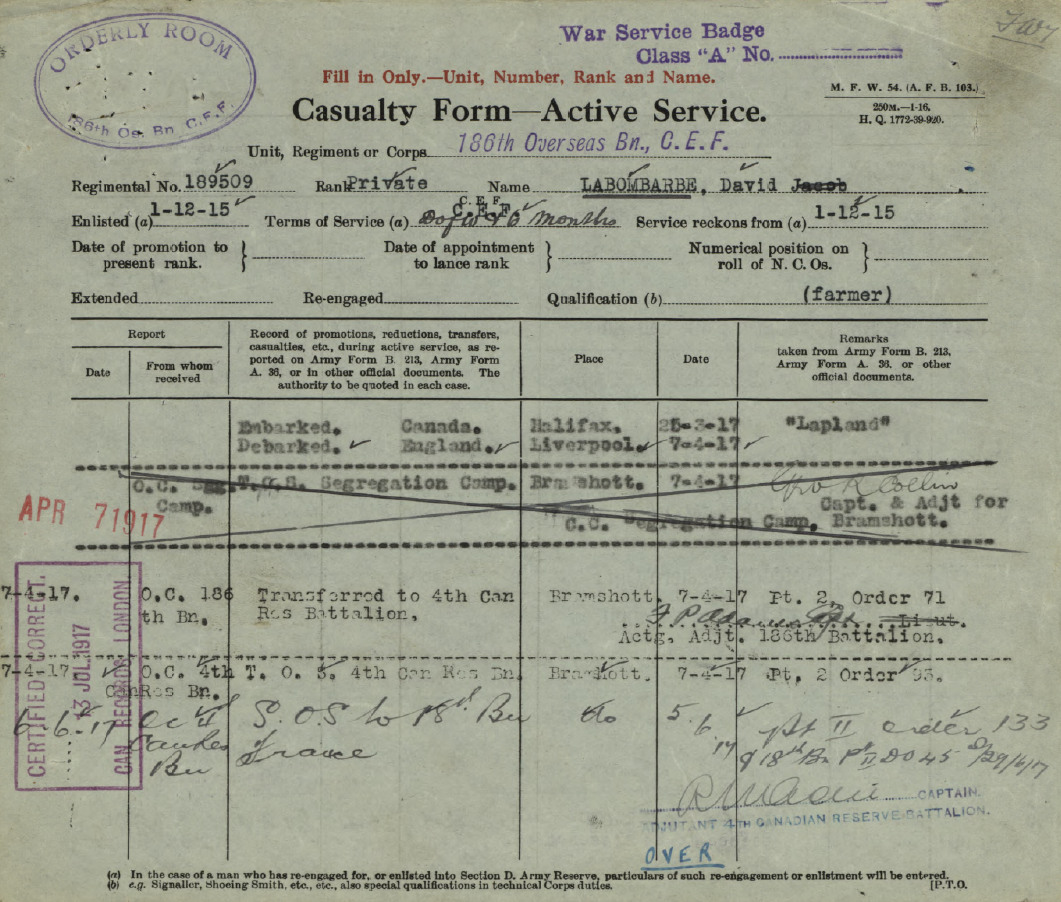 ORDERLY ROOM
186th Os. Bn. C.E.F.
War Service Badge
Class "A" No.
Fill in Only.—Unit, Number, Rank and Name.
M. F. W. 54. (A. F. B. 103.)
250M.—1-16.
H. Q. 1772-39-920.
Casualty Form—Active Service.
Unit, Regiment or Corps 186th Overseas Bn., C.E.F.
Regimental No. 189509 Rank Private Name LABOMBARBE, David Jacob
C.E.F.
Enlisted (a) 1-12-15 Terms of Service (a) C.E.F. D of W & 6 months Service reckons from (a) 1-12-15
Date of promotion to present rank. Date of appointment to lance rank Numerical position on roll of N. C. Os.
Extended Re-engaged Qualification (b) (farmer)
Report
Date
From whom received
Record of promotions, reductions, transfers, casualties, etc., during active service, as reported on Army Form B. 213, Army Form A. 36, or in other official documents. The authority to be quoted in each case.
Place
Date
Remarks
taken from Army Form B. 213, Army Form A. 36, or other official documents.
Embarked. Canada. Halifax. 25-3-17 "Lapland"
Debarked. England. Liverpool. 7-4-17
O.C. Seg. T.O.S. Segregation Camp. Bramshott. 7-4-17
Camp. Capt. & Adjt for
C.C. Segregation Camp. Bramshott.
APR 7 1917
CERTIFIED CORRECT.
13 JUL 1917
CAN RECORDS LONDON.
7-4-17. O.C. 186 Transferred to 4th Can Bramshott. 7-4-17 Pt. 2, Order 71
th Bn. Res Battalion, Lieut.
Actg. Adjt. 186th Battalion.
7-4-17 O.C. 4th T. O. S. 4th Can Res Bn. Bramshott. 7-4-17 Pt. 2 Order 93.
Can Res Bn.
6-6-17 Oc 4th S.O.S to 18th Bn do 5.6.17 Pt II order 133
Bn France 18th Bn Pt II DO 45 29/6/17
CAPTAIN.
ADJUTANT 4TH CANADIAN RESERVE BATTALION.
OVER
(a) In the case of a man who has re-engaged for, or enlisted into Section D. Army Reserve, particulars of such re-engagement or enlistment will be entered.
(b) e.g. Signaller, Shoeing Smith, etc., etc., also special qualifications in technical Corps duties. [P.T.O.